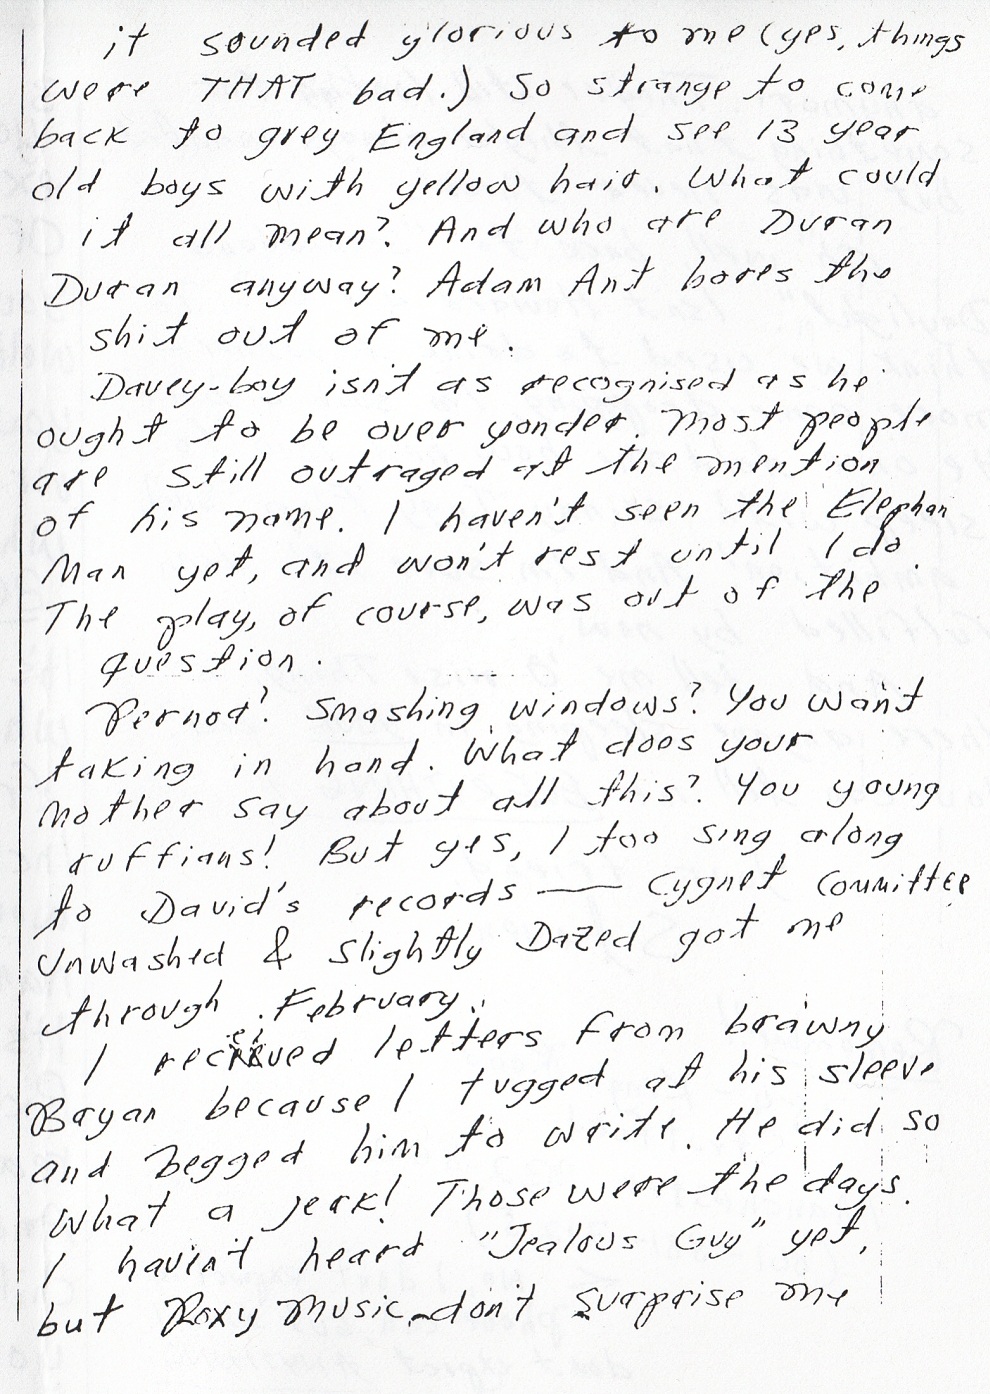 it sounded glorious to me (yes, things
were THAT bad.) So strange to come
back to grey England and see 13 year
old boys with yellow hair. What could
it all mean? And who are Duran
Duran anyway? Adam Ant bores the
shit out of me.
Davey-boy isn't as recognised as he
ought to be over yonder. Most people
are still outraged at the mention
of his name. I haven't seen the Elephan
Man yet, and won't rest until I do
The play, of course, was out of the
question.
Pernod? Smashing windows? You want
taking in hand. What does your
Mother say about all this? You young
ruffians! But yes, I too sing along
to David's records — Cygnet Committee
Unwashed & Slightly Dazed got me
through February.
I received letters from brawny
Bryan because I tugged at his sleeve
and begged him to write. He did so
What a jerk! Those were the days.
I haven't heard "Jealous Guy" yet,
but Roxy Music don't surprise me